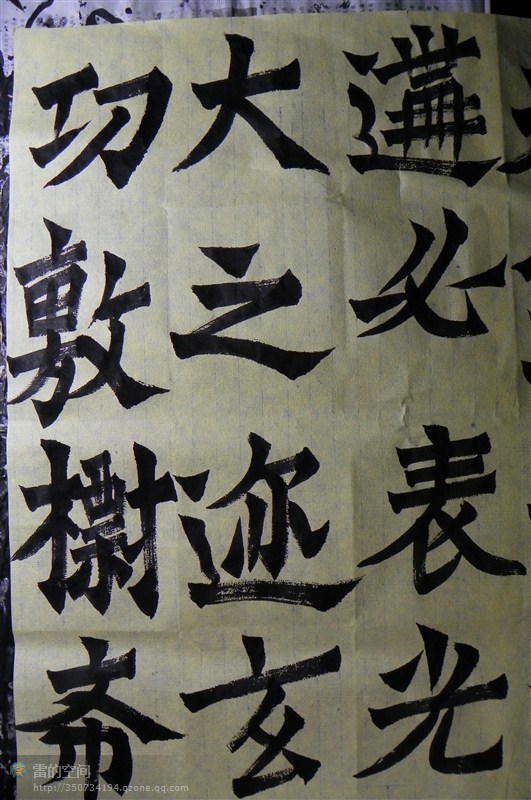 遘必表光
大之迹玄
功敷檦希
雷的空间
http://350734194.qzone.qq.com